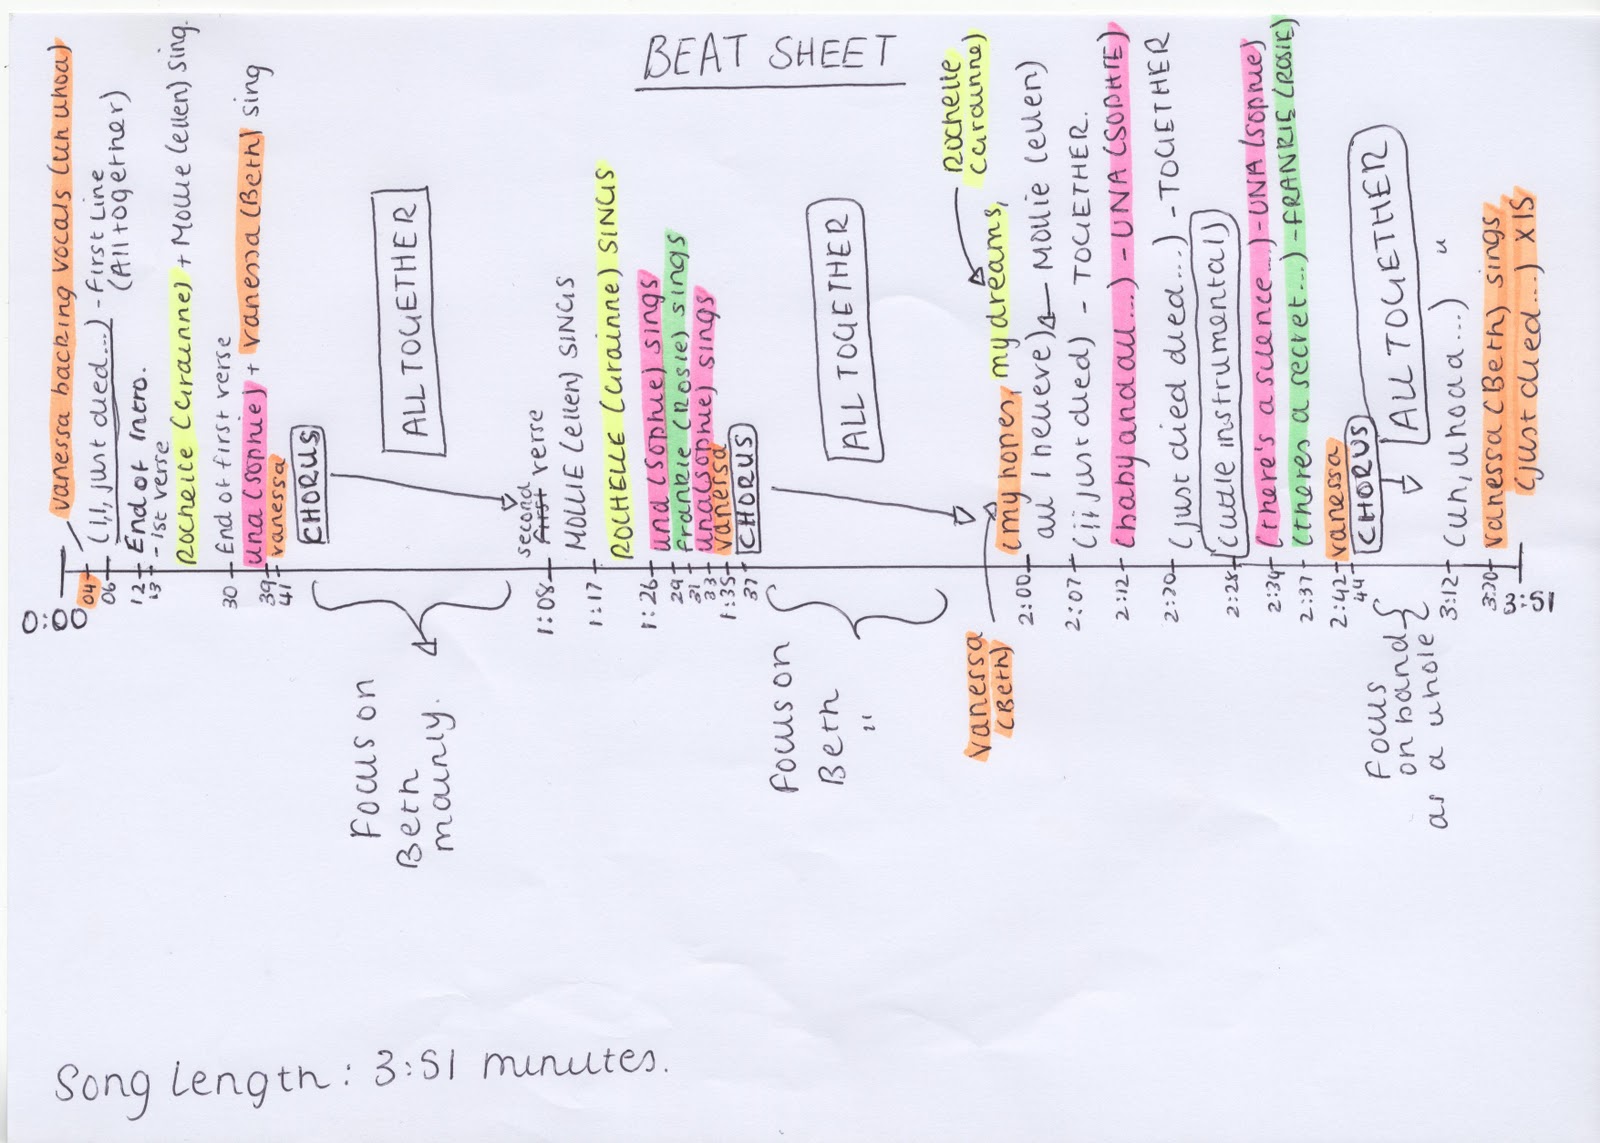 BEAT SHEET
Vanessa backing vocals (uh uhoa)
(I, I, just died...) - First Line
(All together)
End of Intro.
- 1st verse
Rochelle (Grainne) + Mollie (ellen) sing.
End of first verse
Una (Sophie) + Vanessa (Beth) sing
Vanessa
CHORUS
ALL TOGETHER
second
First verse
MOLLIE (ellen) SINGS
ROCHELLE (Grainne) SINGS
Una (Sophie) sings
Frankie (Rosie) sings
Una (Sophie) sings
Vanessa
CHORUS
ALL TOGETHER
Rochelle
(Grainne)
(my hopes, my dreams,
all I believe) Mollie (ellen)
(i i just died) - TOGETHER.
(baby and all...) - UNA (SOPHIE)
(just died died....) - TOGETHER
(little instrumental)
(there's a silence...) - UNA (Sophie)
(theres a secret...) - FRANKIE (ROSIE)
Vanessa
CHORUS
ALL TOGETHER
(uh, uhoaa...) "
Vanessa (Beth) sings
(just died....) x15
0:00
04
06
12
13
30
39
41
1:08
1:17
1:26
29
31
33
1:35
37
2:00
2:07
2:12
2:20
2:28
2:34
2:37
2:42
44
3:12
3:20
3:51
Focus on
Beth
mainly.
Focus on
Beth
"
Vanessa
(Beth)
Focus
on band
as a whole
Song Length: 3:51 minutes.